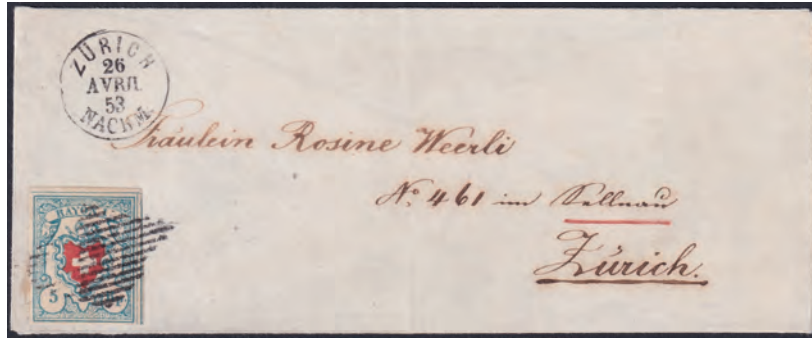 ZÜRICH
26
AVRIL
53
NACHM.
Fräulein Rosine Weerli
No. 461 im Sellnau
Zürich.
RAYON I
5